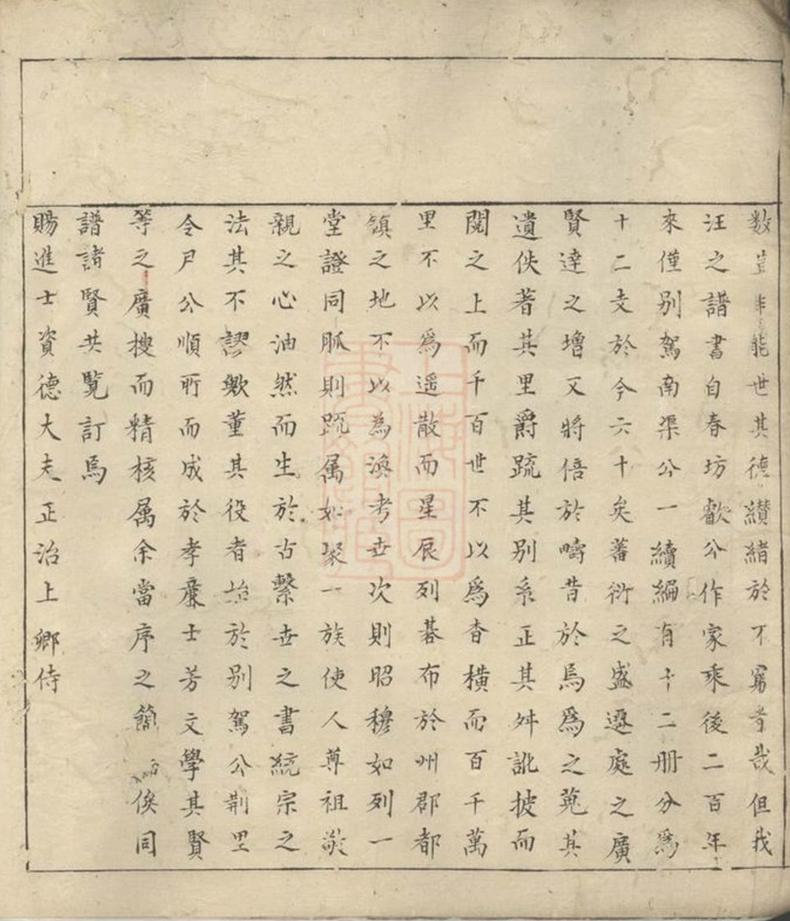 数豈非能世其德纘緒於不窮者哉但我
汪之譜書自春坊歡公作家乘後二百年
來僅别駕南渠公一續編有十二册分爲
十二支於今六十矣蕃衍之盛遷處之廣
賢達之增又將倍於疇昔於焉爲之蒐其
遺佚著其里爵䟽其别系正其舛訛披而
閲之上而千百世不以爲杳横而百千萬
里不以爲遥散而星辰列碁布於州郡都
鎮之地不以為渙考世次則昭穆如列一
堂證同脈則䟽属如聚一族使人尊祖敬
親之心油然而生於古繫世之書統宗之
法其不謬歟董其役者始於别駕公荆里
令尹公順所而成於孝亷士芳文學其賢
等之廣搜而精核属余當序之簡 俟同
譜諸賢共覧訂焉
賜進士資德大夫正治上卿侍